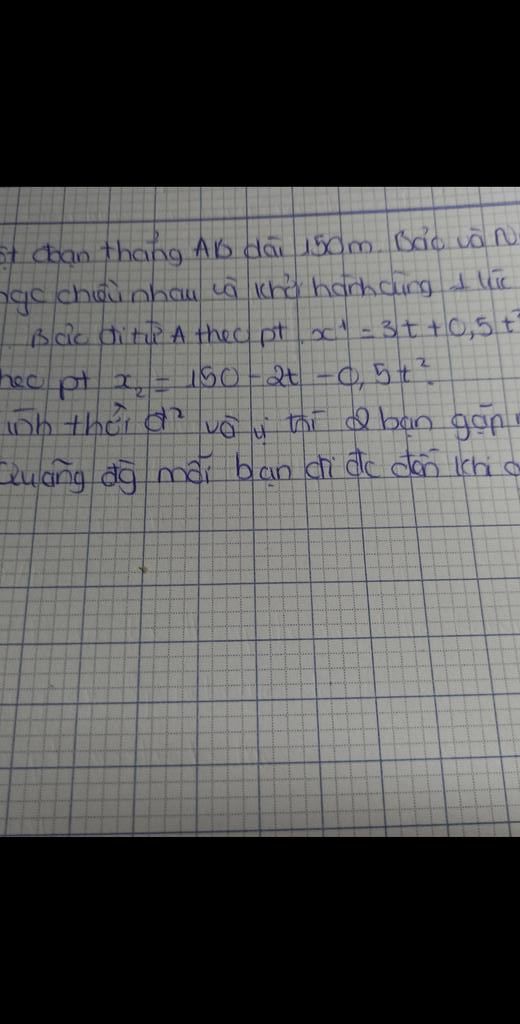 đoạn thẳng AB dài 150m. Bắc và N
ngc chiều nhau và khởi hành cùng 1 lúc
Bắc đi từ A theo pt x1 = 3t + 0,5t²
theo pt x₂ = 150 - 2t - 0,5t².
thời đ² và vị trí 2 bạn gặp
Quãng đg mỗi bạn đi đc đến khi